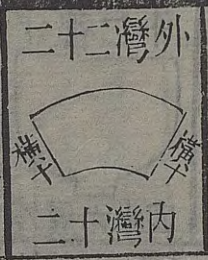 外灣二十二
橫十
橫十
內灣十二